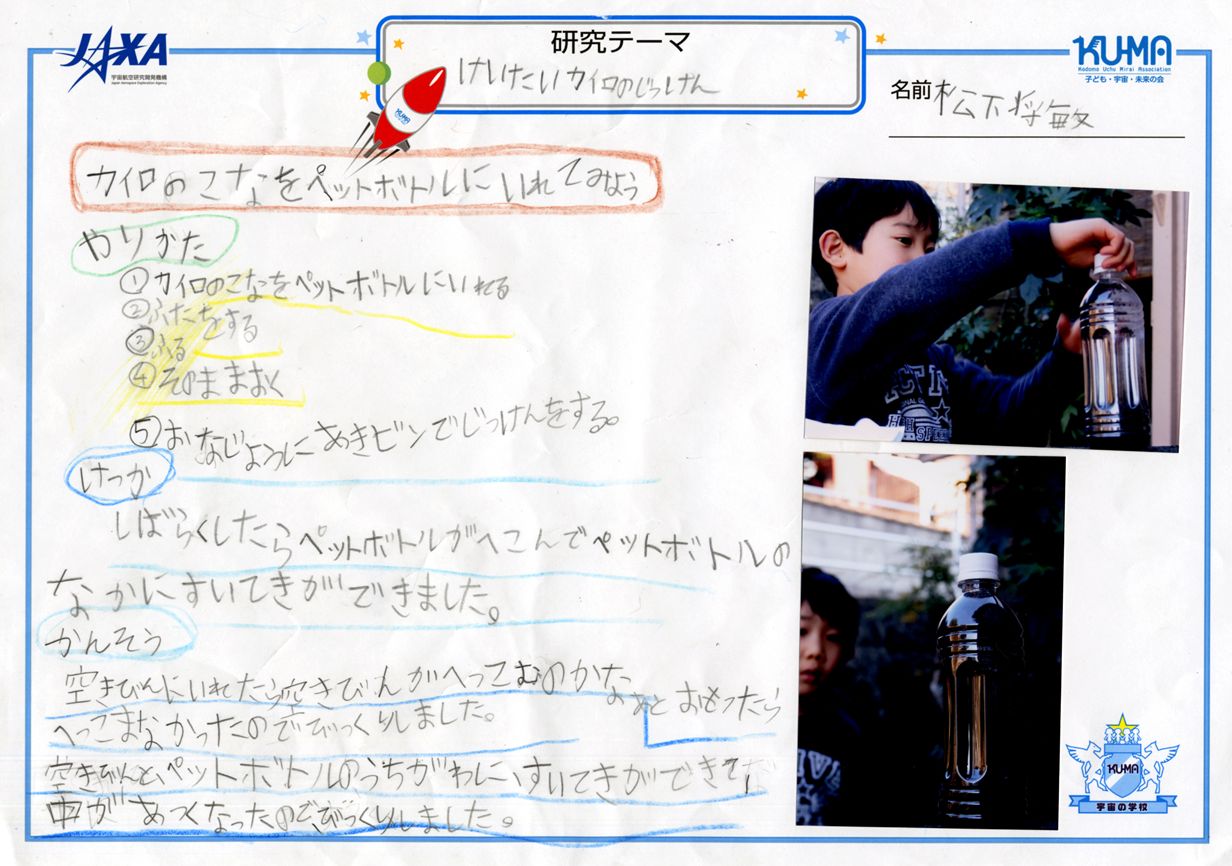 JAXA
宇宙航空研究開発機構
Japan Aerospace Exploration Agency
研究テーマ
けいたいカイロのじっけん
KU-MA
Kodomo Uchu Mirai Association
子ども・宇宙・未来の会
名前 松下将敏
KUMA
カイロのこなをペットボトルにいれてみよう
やりかた
①カイロのこなをペットボトルにいれる
②ふたをする
③ふる
④そのままおく
⑤おなじようにあきビンでじっけんをする。
けっか
しばらくしたらペットボトルがへこんでペットボトルの
なかにすいてきができました。
かんそう
空きびんにいれたら空きびんがへっこむのかなぁとおもったら
へっこまなかったのでびっくりしました。
空きびんと、ペットボトルのうちがわに、すいてきができてた
中があつくなったのでびっくりしました。
KU-MA
宇宙の学校